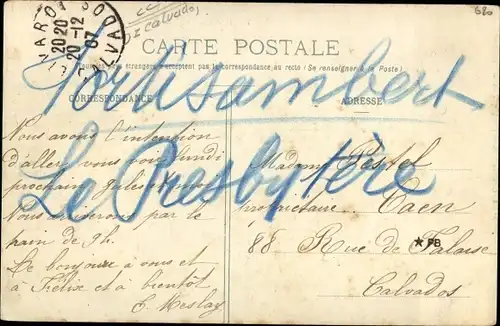 20 20
20 - 12
07
CALVADOS
Calvados)
680
CARTE POSTALE
Tous les pays étrangers n'acceptent pas la correspondance au recto (Se renseigner à la Poste)
CORRESPONDANCE
ADRESSE
Fortisambert
Le Presbytère
Nous avons l'intention
d'aller vous voir lundi
prochain Jules et moi
Nous serons par le
train de 9h.
Le bonjour à vous et
à Félix et à bientôt
E. Meslay
Madame Postel
propriétaire Caen
88 Rue de Falaise
★PB
Calvados